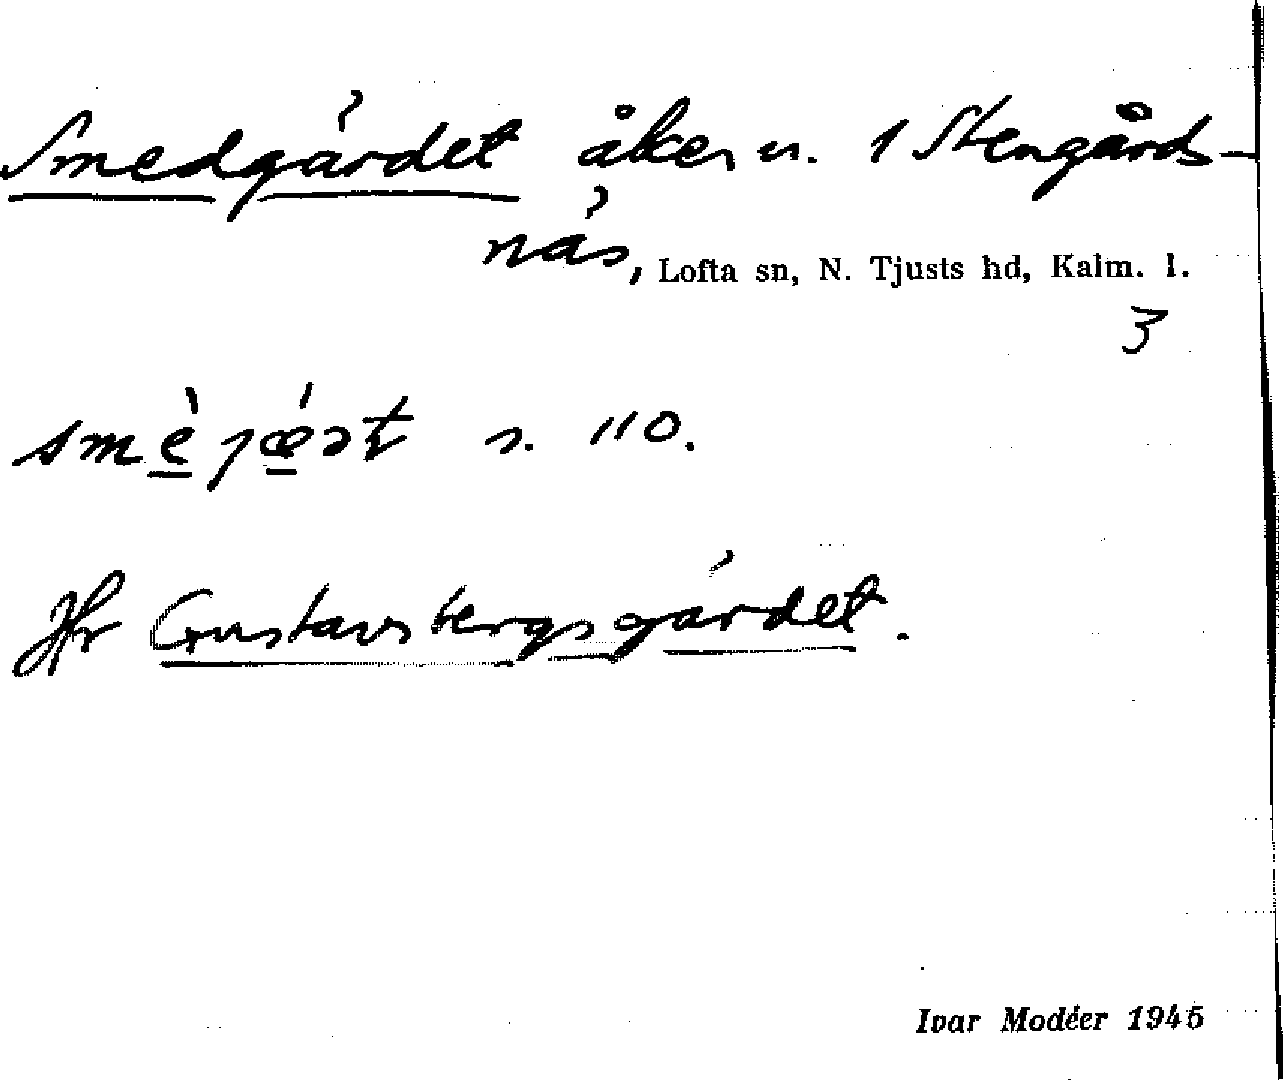 Smedgärdet åker n. 1 Stengårds-
näs, Lofta sn, N. Tjusts hd, Kalm. l.
3
s. 110.
Jfr Gustavsbergsgärdet.
Ivar Modéer 1945